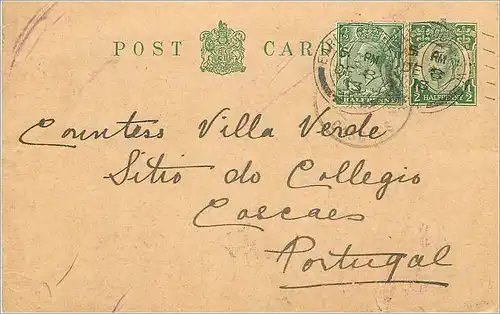 POST CARD
HALFPENNY
½ HALFPENNY ½
PM
PM
Countess Villa Verde
Sitio do Collegio
Cascaes
Portugal